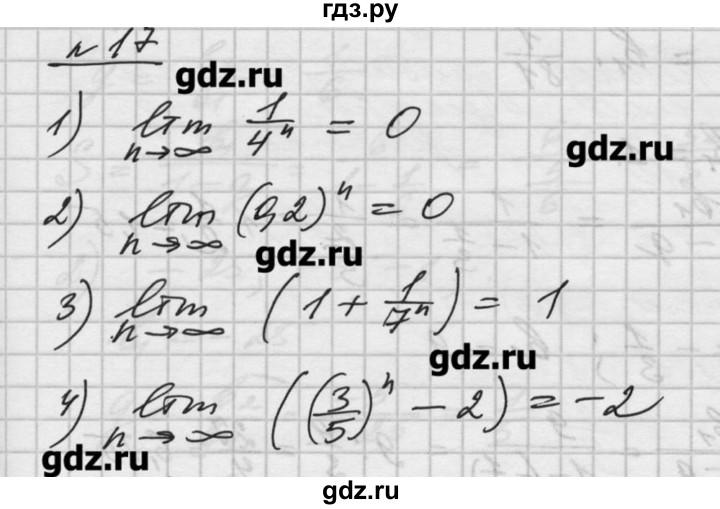 гдз.ру
№17
gdz.ru
1) lim n→∞ 1/4ⁿ = 0
gdz.ru
2) lim n→∞ (0,2)ⁿ = 0
gdz.ru
3) lim n→∞ (1 + 1/7ⁿ) = 1
gdz.ru
4) lim n→∞ ((3/5)ⁿ - 2) = -2
gdz.ru
gdz.ru